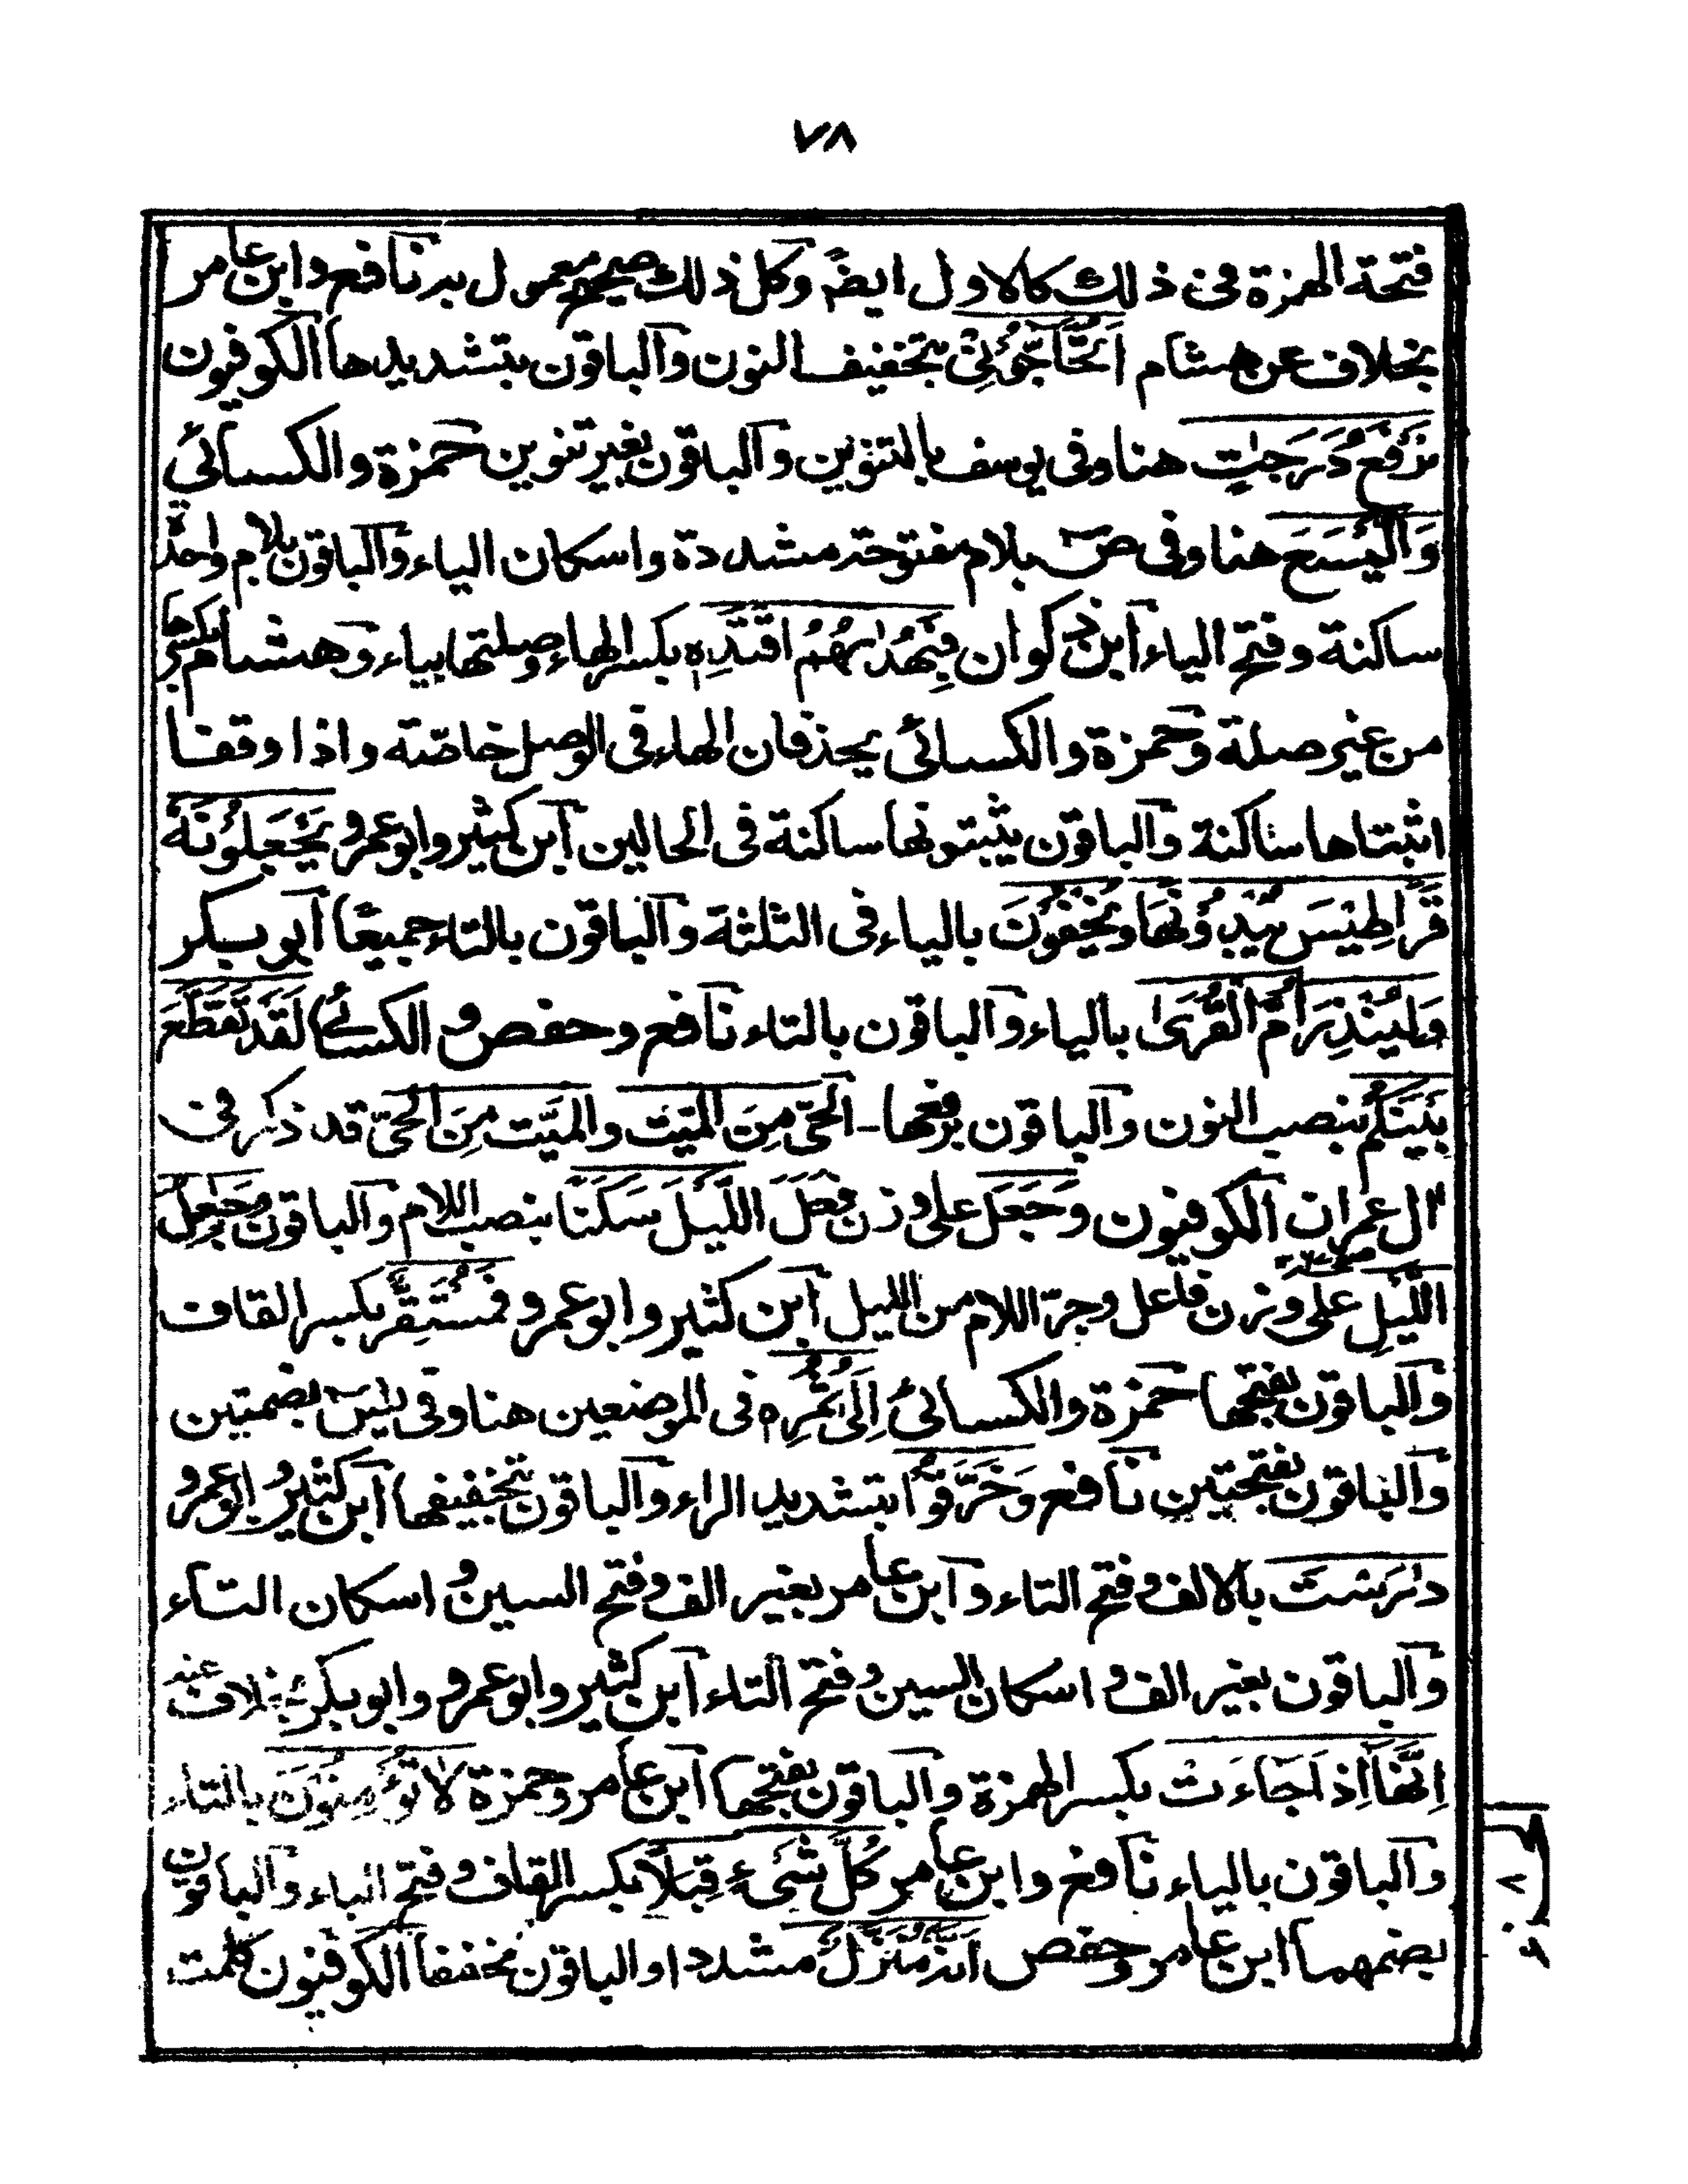 ٧٨
فتحة الهمزة فی ذلك كالاول ايضً وكل ذلك صحيح معمول به نافع وابن عامر
بخلاف عن هشام اَتُحَاجُّوۡنِىۡ بتخفيف النون والباقون بتشديدها الكوفيون
نَرۡفَعُ دَرَجٰتٍ هنا وفی يوسف بالتنوين والباقون بغير تنوين حمزة والكسائی
وَالۡيَسَعَ هنا وفی صٓ بلام مفتوحة مشددة واسكان الياء والباقون بلام واحدة
ساكنة وفتح الياء ابن ذكوان فَبِهُدٰىهُمُ اقۡتَدِهٖ بكسر الهاء وصلتها بياء وهشام بكسرها
من غير صلة وحمزة والكسائی يحذفان الهاء فی الوصل خاصّته واذا وقفا
اثبتاها ساكنة والباقون يثبتونها ساكنة فی الحالين ابن كثير وابو عمرو يَجۡعَلُوۡنَهٗ
قَرَاطِيۡسَ يُبۡدُوۡنَهَا وَيُخۡفُوۡنَ بالياء فی الثلثة والباقون بالتاء جميعًا ابو بكر
وَلِيُنۡذِرَ اُمَّ الۡقُرٰى بالياء والباقون بالتاء نافع وحفص و الكسائی لَقَدۡ تَقَطَّعَ
بَيۡنَكُمۡ بنصب النون والباقون برفعها - الۡحَىَّ مِنَ الۡمَيِّتِ والۡمَيِّتِ مِنَ الۡحَىِّ قد ذكر فی
اٰل عمران الكوفيون وَجَعَلَ علی وزن فَعَلَ اللَّيۡلَ سَكَنًا بنصب اللام والباقون وَجٰعِلُ
اللَّيۡلِ علی وزن فاعل وجرّ اللام من الليل ابن كثير وابو عمرو فَمُسۡتَقِرٌّ بكسر القاف
والباقون بفتحها حمزة والكسائی اِلٰى ثُمُرِهٖ فی الموضعين هنا وفی يٰسٓ بضمتين
والباقون بفتحتين نافع وَخَرَّقُوۡا بتشديد الراء والباقون بتخفيفها ابن كثير وابو عمرو
دٰرَسۡتَ بالالف وفتح التاء وابن عامر بغير الف وفتح السين و اسكان التاء
والباقون بغير الف و اسكان السين وفتح التاء ابن كثير وابو عمرو وابو بكر بخلاف عنه
اِنَّهَاۤ اِذَا جَآءَتۡ بكسر الهمزة والباقون بفتحها ابن عامر وحمزة لَا تُؤۡمِنُوۡنَ بالتاء
والباقون بالياء نافع وابن عامر كُلَّ شَىۡءٍ قِبَلًا بكسر القاف وفتح الباء والباقون
بضمهما ابن عامر وحفص اَنَّهٗ مُنَزَّلٌ مشددا والباقون مخففا الكوفيون كلمت